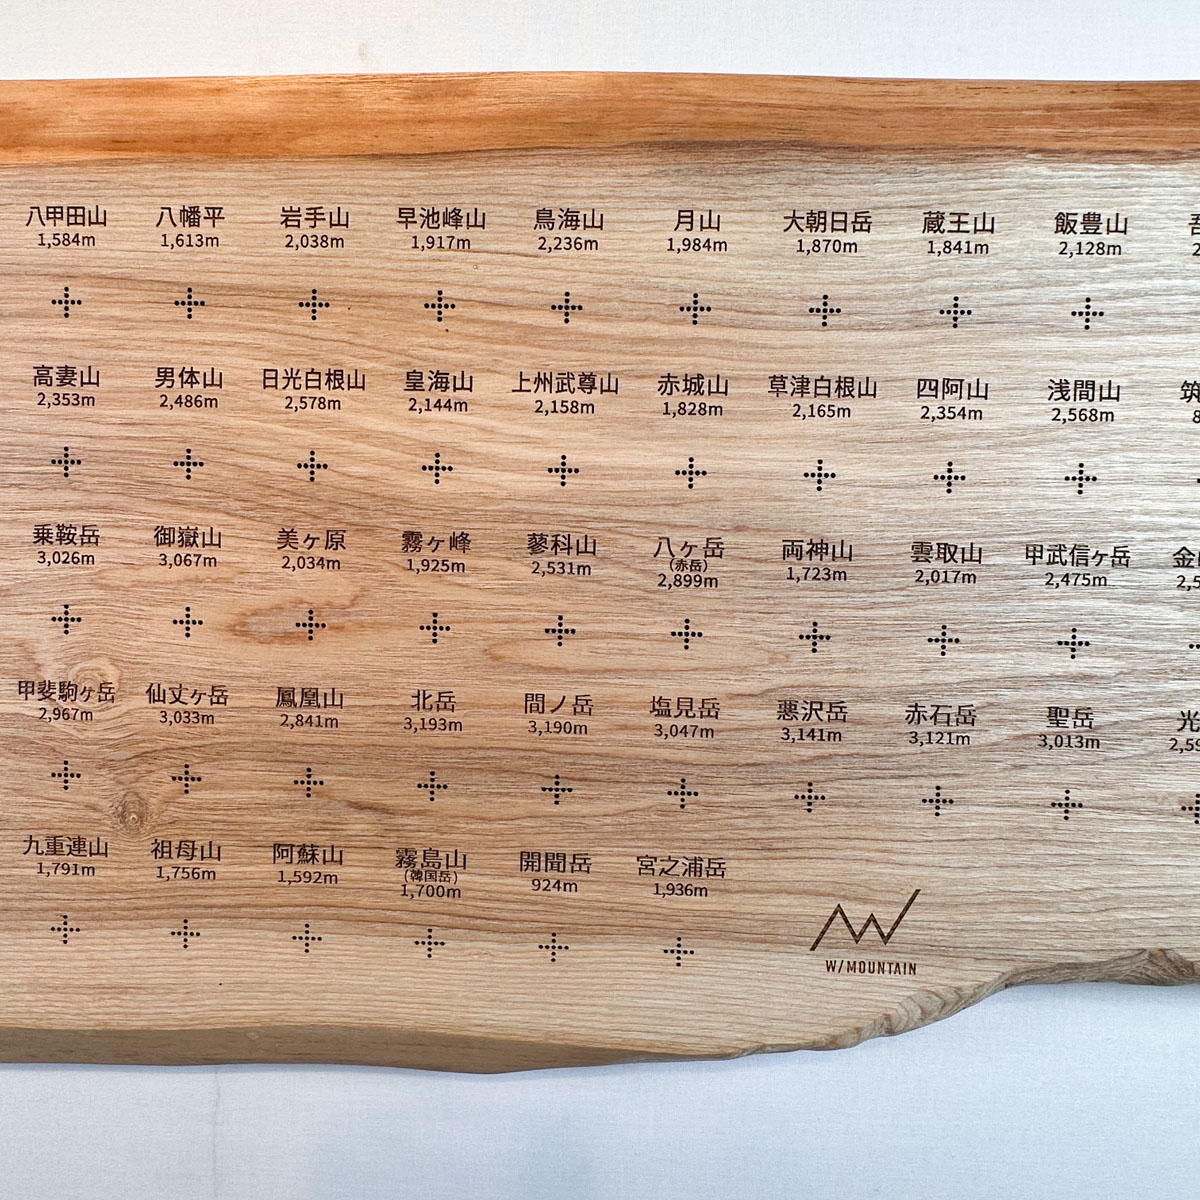 八甲田山 八幡平 岩手山 早池峰山 鳥海山 月山 大朝日岳 蔵王山 飯豊山
1,584m 1,613m 2,038m 1,917m 2,236m 1,984m 1,870m 1,841m 2,128m
高妻山 男体山 日光白根山 皇海山 上州武尊山 赤城山 草津白根山 四阿山 浅間山 筑
2,353m 2,486m 2,578m 2,144m 2,158m 1,828m 2,165m 2,354m 2,568m 8
乗鞍岳 御嶽山 美ヶ原 霧ヶ峰 蓼科山 八ヶ岳 両神山 雲取山 甲武信ヶ岳 金
(赤岳)
3,026m 3,067m 2,034m 1,925m 2,531m 2,899m 1,723m 2,017m 2,475m 2,5
甲斐駒ヶ岳 仙丈ヶ岳 鳳凰山 北岳 間ノ岳 塩見岳 悪沢岳 赤石岳 聖岳 光
2,967m 3,033m 2,841m 3,193m 3,190m 3,047m 3,141m 3,121m 3,013m 2,59
九重連山 祖母山 阿蘇山 霧島山 開聞岳 宮之浦岳
(韓国岳)
1,791m 1,756m 1,592m 1,700m 924m 1,936m
W/MOUNTAIN